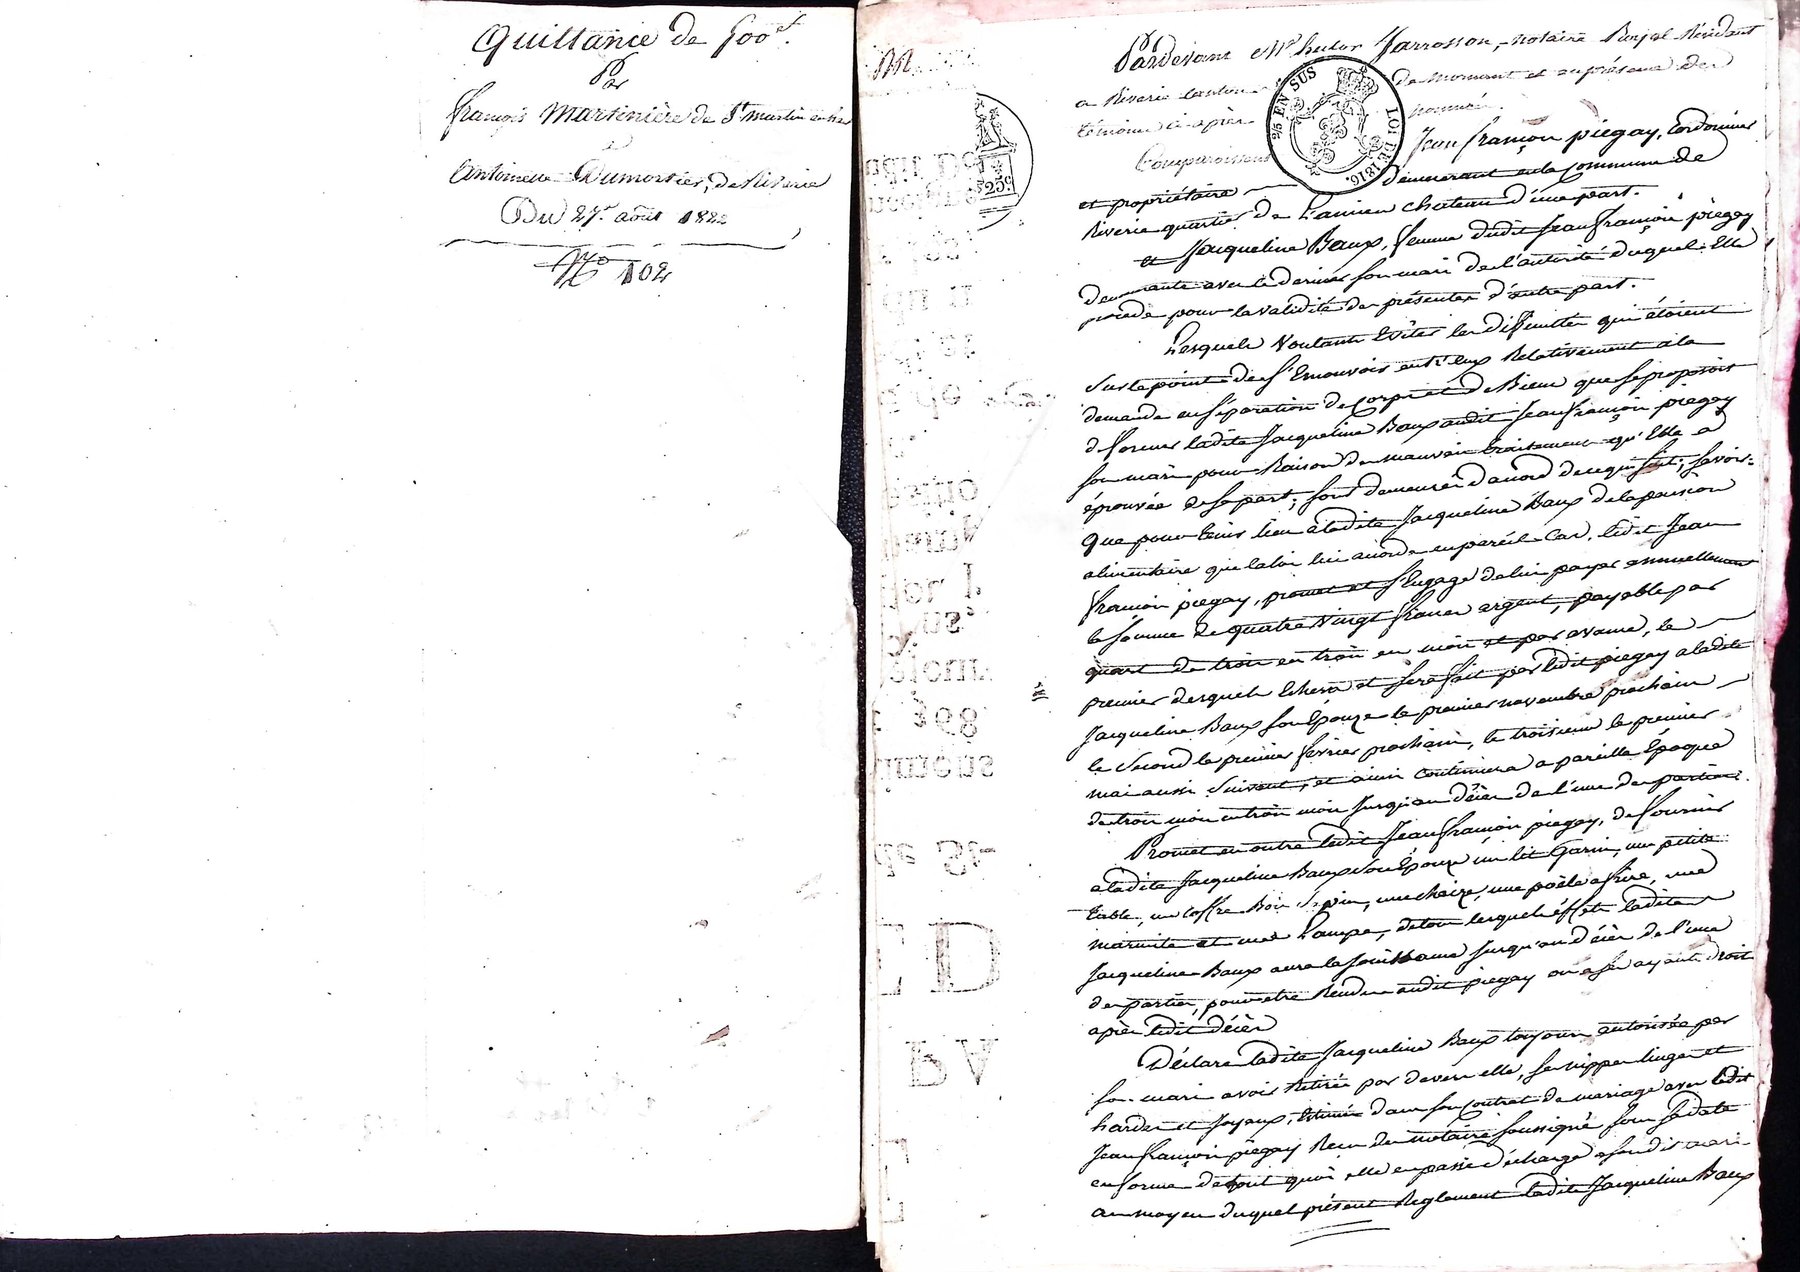 Quittance de 500f.
Par
françois Martinière de St martin
a
Antoinette Dumortier, de Riverie
Du 27. août 1822
No 102
Pardevant Me hector Jarrosson, notaire Royal Résidant
a Riverie canton de mornant et en présence des
témoins ci après nommés.
25 EN SUS
LOI DE 1816.
25c.
Comparoissent Jean françois piegay, cordonnier
et propriétaire demeurant en la commune de
Riverie quartier de l'ancien chateau d'une part.
et Jacqueline Baux, femme dudit Jean françois piegay
demeurante avec ce dernier son mari de l'autorité duquel Elle
procède pour la validité des présentes d'autre part.
Lesquels voulants Eviter les difficultés qui étoient
sur le point de s'Emouvoir entr'eux Relativement à la
demande en séparation de corps et de Biens que se proposoit
de former ladite Jacqueline Baux audit Jean françois piegay
son mari pour Raison des mauvais traitements qu'Elle a
éprouvée de sa part; sont demeurés d'acord de ce qui suit; savoir:
Que pour tenir lieu a ladite Jacqueline Baux de la pension
alimentaire que la loi lui acorde en pareil Cas, ledit Jean
françois piegay, promet et s'Engage de lui payer annuellement
la somme de quatre vingt francs argent, payable par
quart de trois en trois en mois et par avance, le
premier desquels Echera et sera fait par ledit piegay a ladite
Jacqueline Baux son Epouze le premier novembre prochain
le second le premier fevrier prochain, le troisieme le premier
mai aussi suivant, et ainsi continuera a pareille Epoque
de trois mois en trois mois jusqu'au décès de l'une des parties.
Promet en outre ledit Jean françois piegay, de fournir
a ladite Jacqueline Baux son Epouze un lit Garni, une petite
table, un coffre Bois Sapin, une chaize, une poële a frire, une
marmite et une Lampe, de tous lesquels éffets ladite
Jacqueline Baux aura la jouissance jusqu'au décès de l'une
des parties, pour être Rendus audit piegay ou a ses ayants droit
après ledit décès
Déclare ladite Jacqueline Baux toujours autorisée par
son mari avoir Retirée par devers elle, ses nippes linges et
hardes et joyaux, Estimés dans son contrat de mariage avec ledit
Jean françois piegay Recu du notaire soussigné sous sa date
en forme de tout quoi elle en passe décharge a sondit mari
au moyen duquel présent Reglement ladite Jacqueline Baux